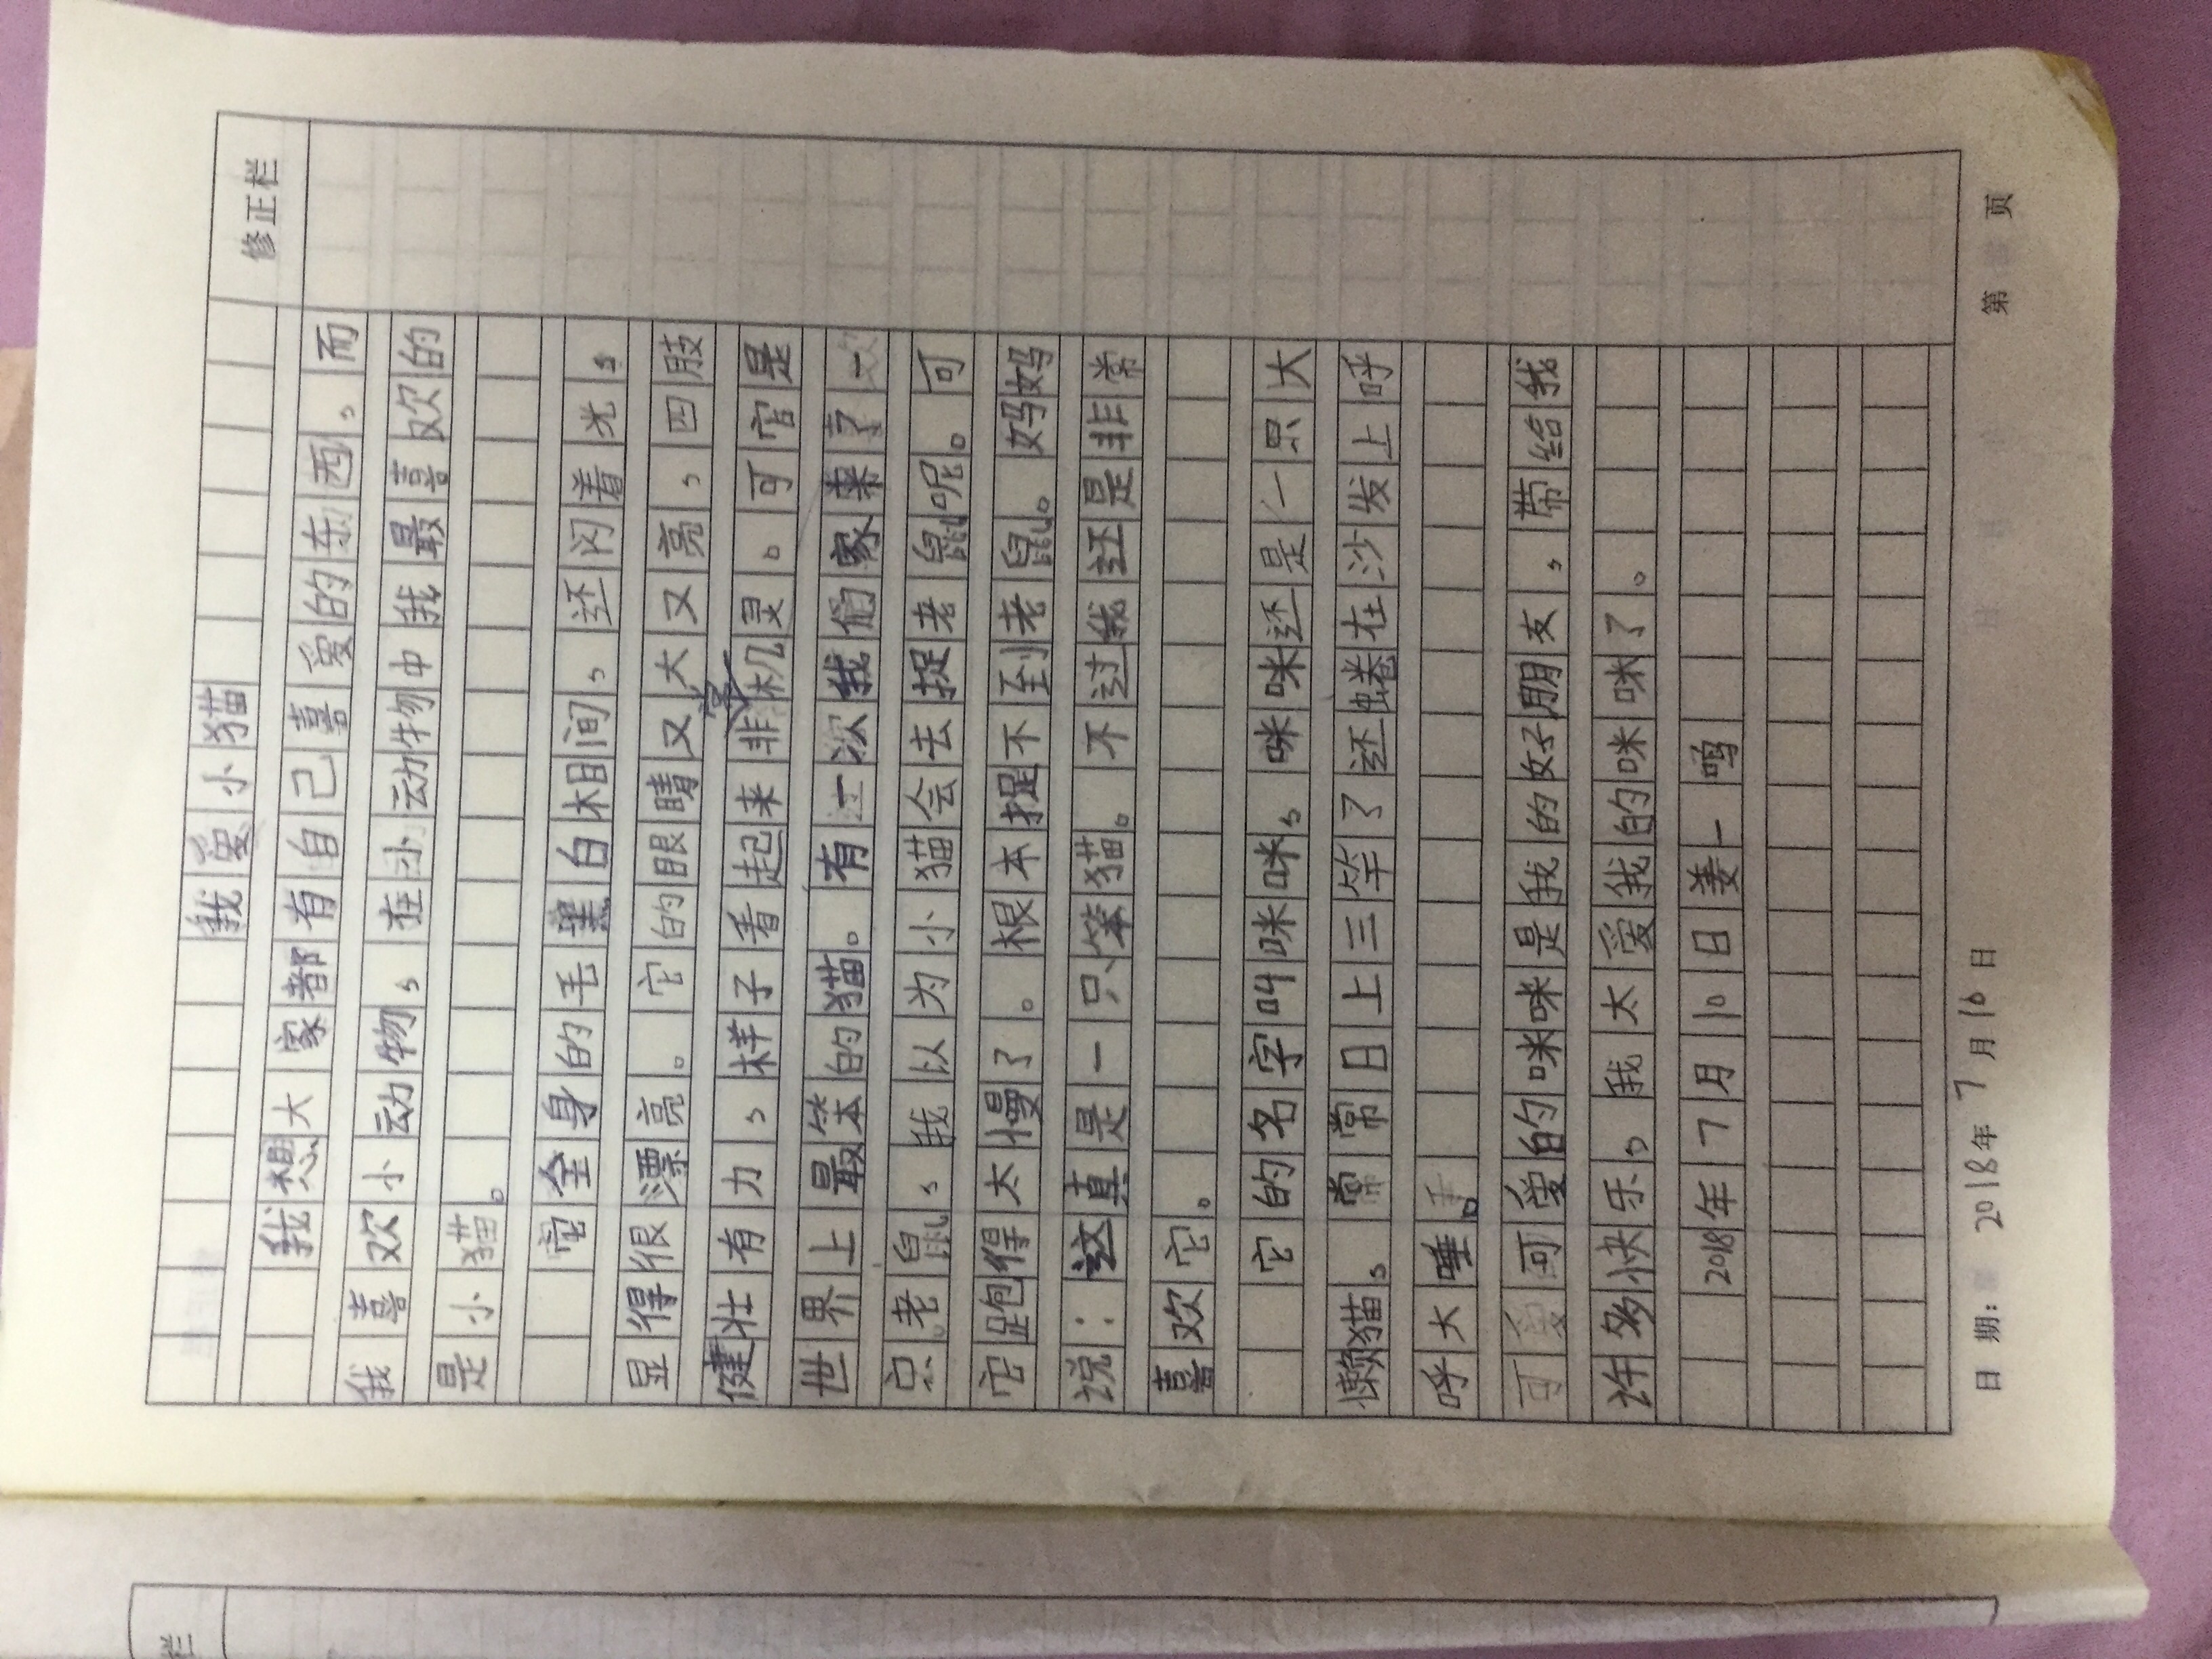 修正栏
我爱小猫
我想大家都有自己喜爱的东西，而
我喜欢小动物，在小动物中我最喜欢的
是小猫。
它全身的毛黑白相间，还闪着光，
显得很漂亮。它的眼睛又大又亮，四肢
健壮有力，样子看起来非常机灵。可它是
世界上最笨的猫。有一次我们家来了一
只老鼠，我以为小猫会去捉老鼠呢。可
它跑得太慢了。根本捉不到老鼠。妈妈
说：这真是一只笨猫。不过我还是非常
喜欢它。
它的名字叫咪咪，咪咪还是一只大
懒猫，常常日上三竿了还蜷在沙发上呼
呼大睡。
可爱的咪咪是我的好朋友，带给我
许多快乐，我太爱我的咪咪了。
2018年7月10日姜一鸣
日期：2018年7月10日
第 页
栏